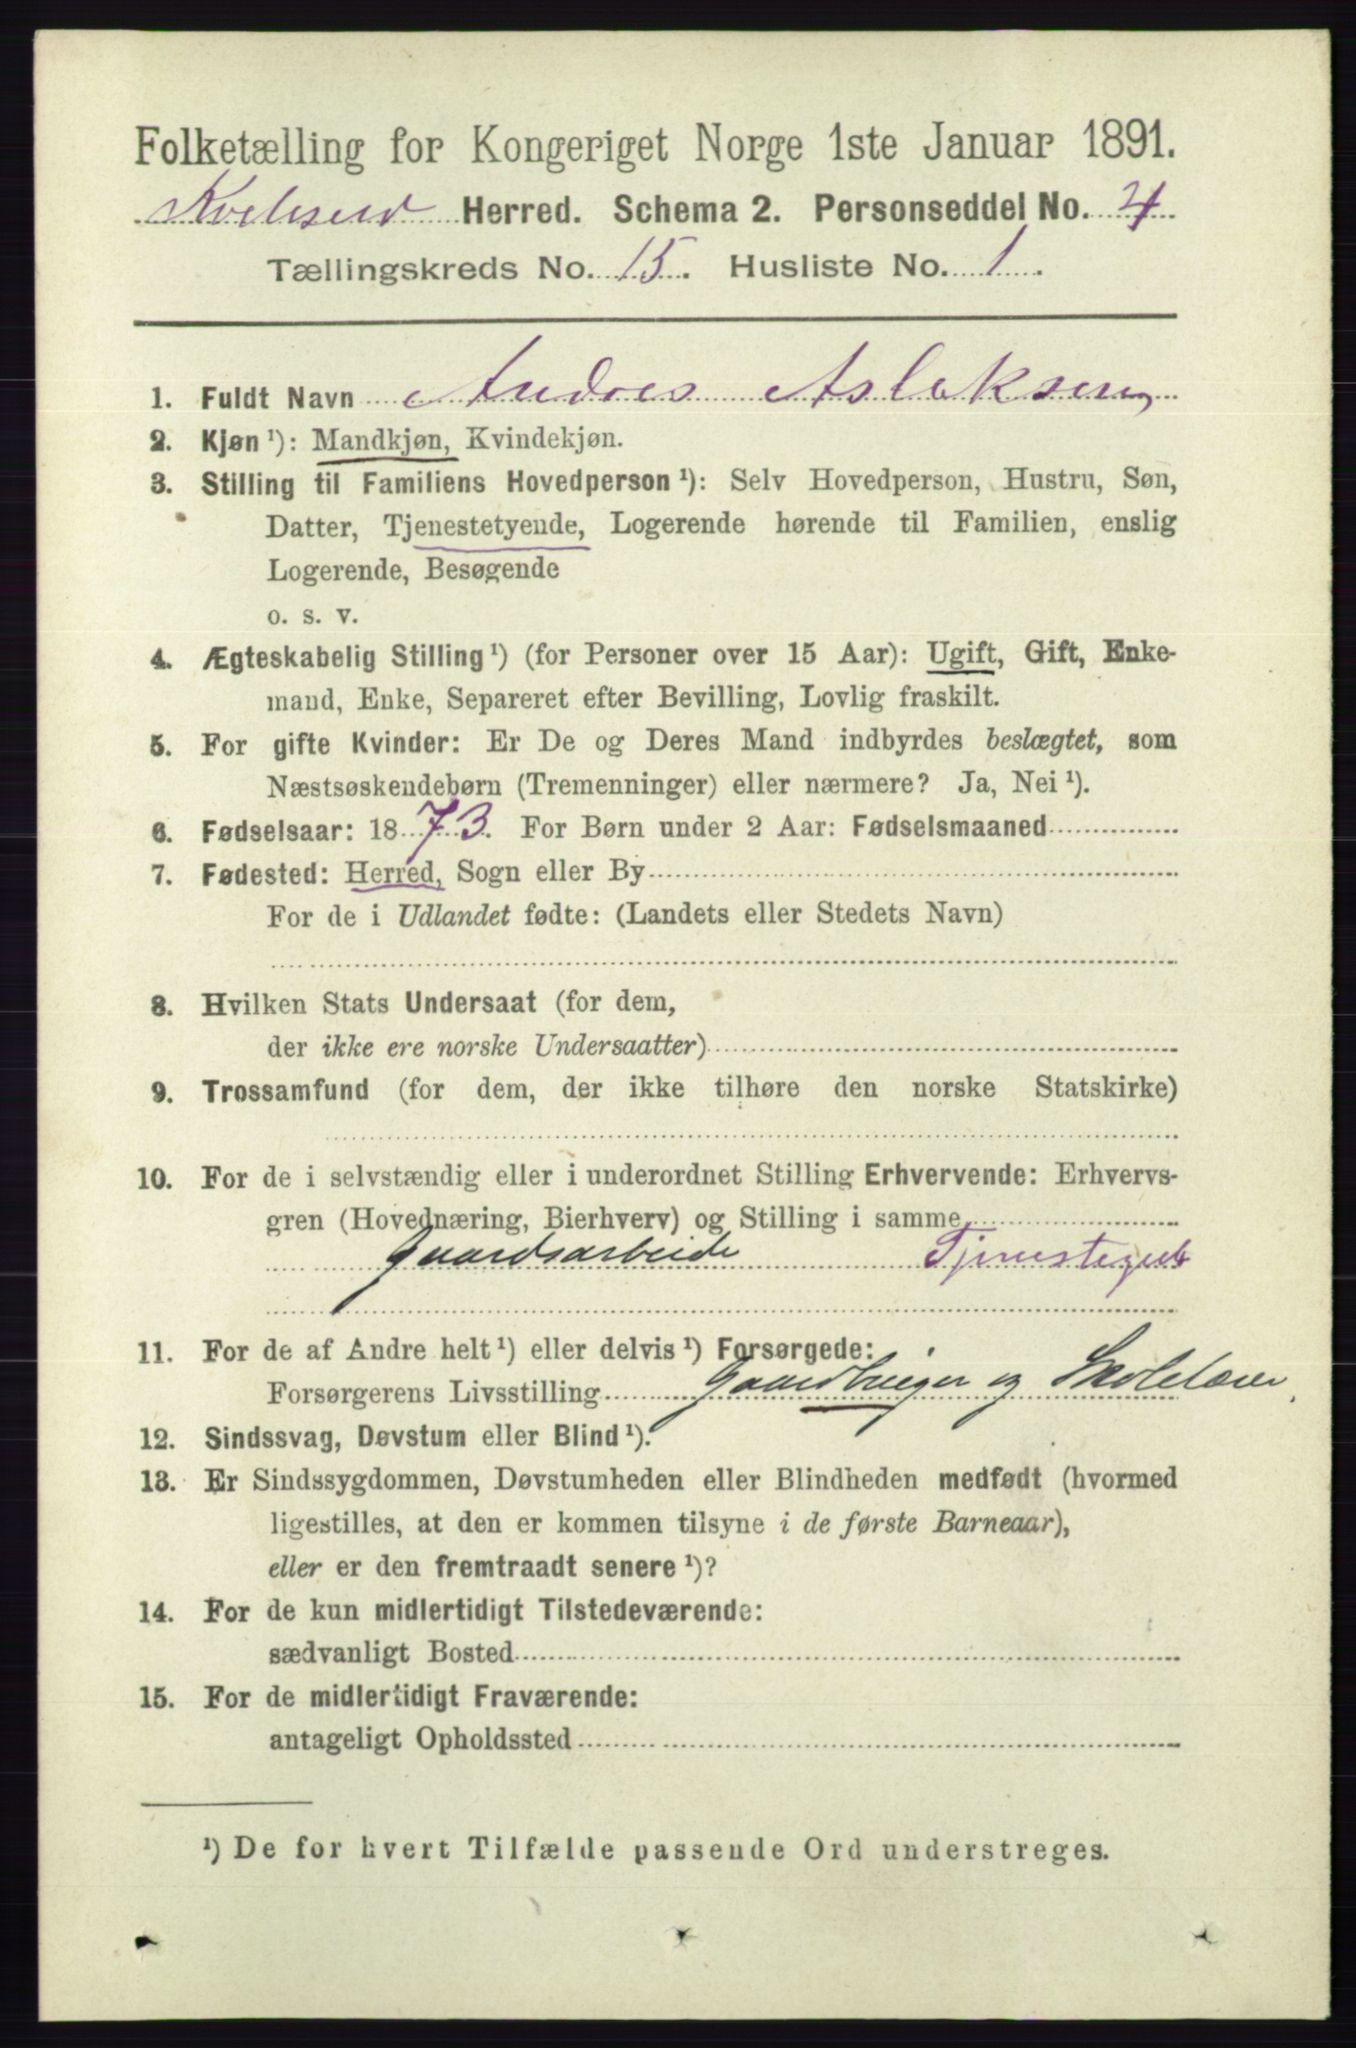 Folketælling for Kongeriget Norge 1ste Januar 1891.
Kviteseid Herred. Schema 2. Personseddel No. 4
Tællingskreds No. 15. Husliste No. 1.
1. Fuldt Navn Andres Asleksen
2. Kjøn ¹): Mandkjøn, Kvindekjøn.
3. Stilling til Familiens Hovedperson ¹): Selv Hovedperson, Hustru, Søn,
Datter, Tjenestetyende, Logerende hørende til Familien, enslig
Logerende, Besøgende
o. s. v.
4. Ægteskabelig Stilling ¹) (for Personer over 15 Aar): Ugift, Gift, Enke-
mand, Enke, Separeret efter Bevilling, Lovlig fraskilt.
5. For gifte Kvinder: Er De og Deres Mand indbyrdes beslægtet, som
Næstsøskendebørn (Tremenninger) eller nærmere? Ja, Nei ¹).
6. Fødselsaar: 1873. For Børn under 2 Aar: Fødselsmaaned
7. Fødested: Herred, Sogn eller By
For de i Udlandet fødte: (Landets eller Stedets Navn)
8. Hvilken Stats Undersaat (for dem,
der ikke ere norske Undersaatter)
9. Trossamfund (for dem, der ikke tilhøre den norske Statskirke)
10. For de i selvstændig eller i underordnet Stilling Erhvervende: Erhvervs-
gren (Hovednæring, Bierhverv) og Stilling i samme
Gaardsarbeide Tjenestegut
11. For de af Andre helt ¹) eller delvis ¹) Forsørgede:
Forsørgerens Livsstilling Gaardbruger og Skolelærer
12. Sindssvag, Døvstum eller Blind ¹).
13. Er Sindssygdommen, Døvstumheden eller Blindheden medfødt (hvormed
ligestilles, at den er kommen tilsyne i de første Barneaar),
eller er den fremtraadt senere ¹)?
14. For de kun midlertidigt Tilstedeværende:
sædvanligt Bosted
15. For de midlertidigt Fraværende:
antageligt Opholdssted
¹) De for hvert Tilfælde passende Ord understreges.